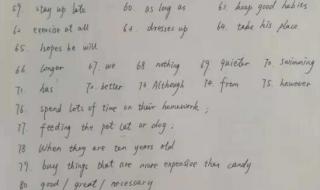 59. stay up late 60. as long as 61. keep good habies
62 exercise at all 63. dresses up 64. take his place
65. hopes he will
66 longer 67. we 68 nothing 69 quieter 70. swimming
71. has 72. better 73. Although 74. from 75. however
76. spend lots of time on their homework;
77. feeding the pet cat or dog;
78 When they are ten years old
79. buy things that are more expensive than candy
80 good / great / necessary